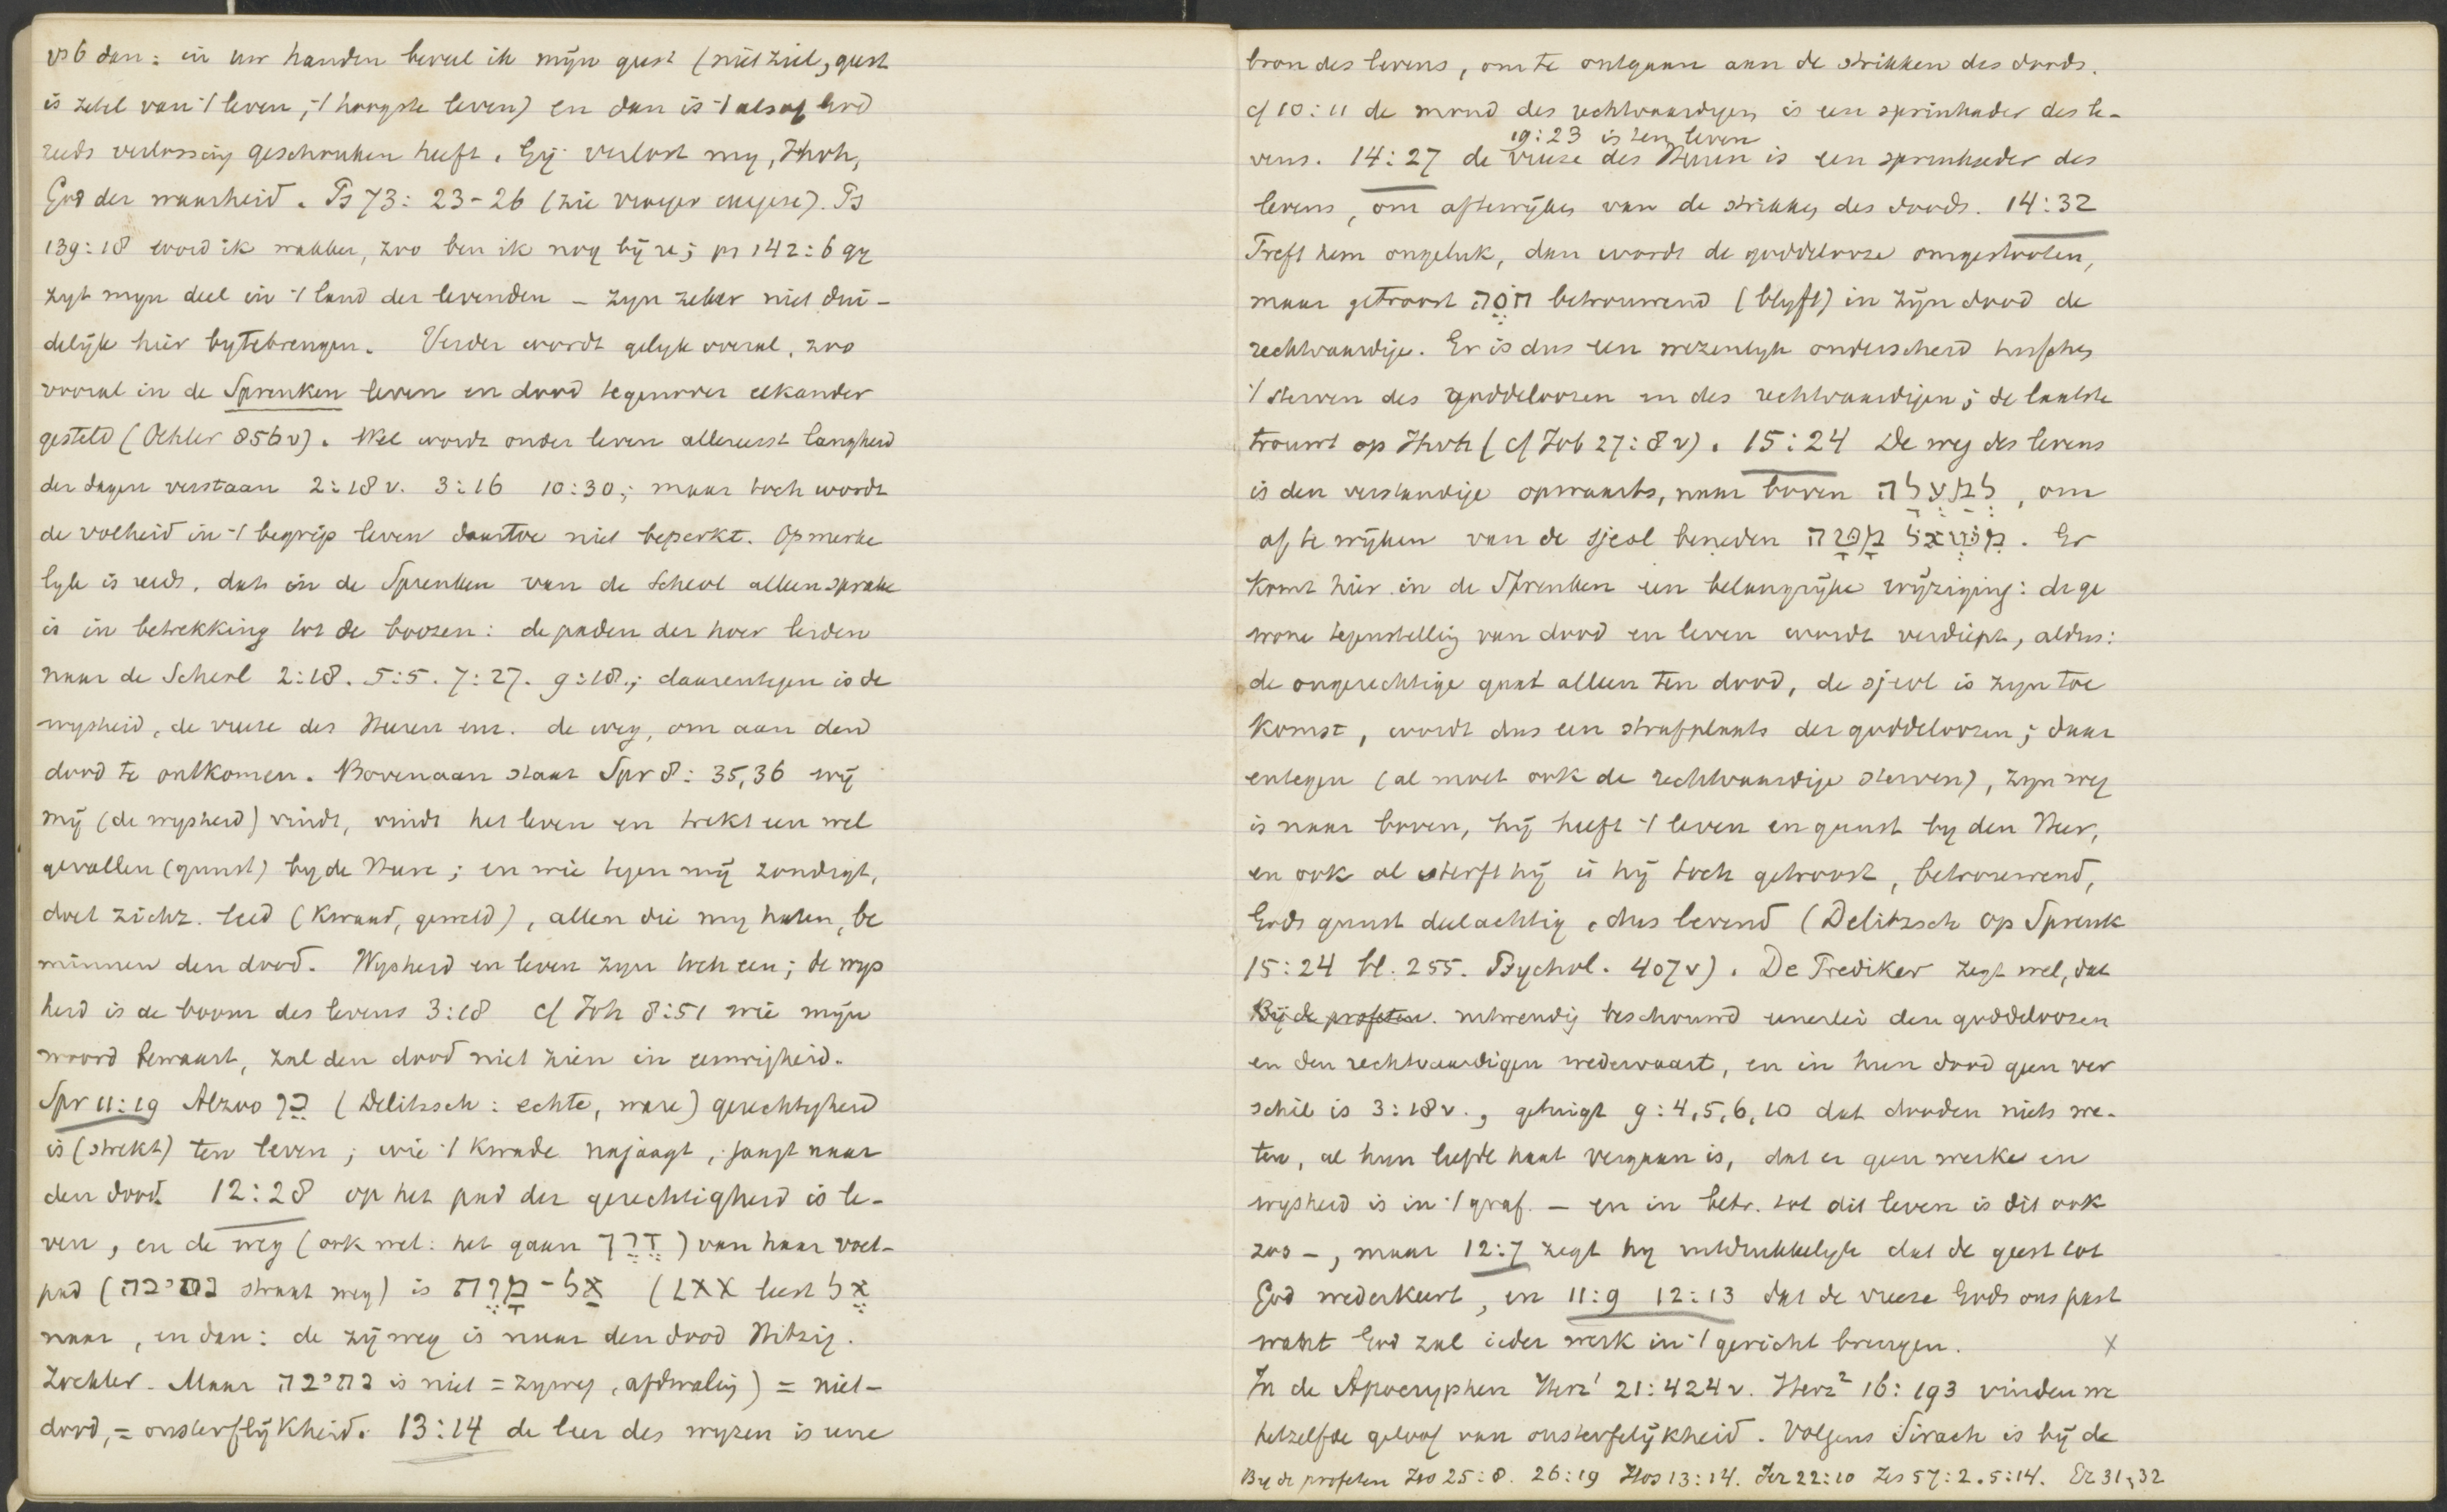 vs 6 dan: in uw handen beveel ik mijn geest (niet ziel, geest
is zetel van 't leven, 't hoogste leven) en dan is 't alsof God
reeds verlossing geschonken heeft. Gij verlost my, Jhvh,
God der waarheid. Ps 73: 23-26 (zie vroeger exegese). Ps
139:18 word ik wakker, zoo ben ik nog bij u; ps 142:6 gy
zyt myn deel in 't land der levenden - zyn zeker niet dui-
delijk hier bytebrengen. Verder wordt gelyk overal, zoo
vooral in de Spreuken leven en dood tegenover elkander
gesteld (Oehler 856v). Wel wordt onder leven allereerst langheid
der dagen verstaan 2:18v. 3:16 10:30; maar toch wordt
de volheid in 't begrip leven daartoe niet beperkt. Opmerke
lyk is reeds, dat in de Spreuken van de Scheol alleen sprake
is in betrekking tot de boozen: de paden der hoer leiden
naar de Scheol 2:18. 5:5. 7:27. 9:18.; daarentegen is de
wysheid, de vreeze des Heeren enz. de weg, om aan den
dood te ontkomen. Bovenaan staat Spr 8: 35,36 wij
mij (de wysheid) vindt, vindt het leven en trekt een wel
gevallen (gunst) by de Heere; en wie tegen mij zondigt,
doet zichz. leed (kwaad, geweld), allen die my haten, be
minnen den dood. Wysheid en leven zyn toch een; de wys
heid is de boom des levens 3:18 cf Joh 8:51 wie mijn
woord bewaart, zal den dood niet zien in eeuwigheid.
Spr 11:19 Alzoo כֵּן (Delitzsch: echte, ware) gerechtigheid
is (strekt) ten leven; wie 't kwade najaagt, jaagt naar
den dood. 12:28 op het pad der gerechtigheid is le-
ven, en de weg (ook wel: het gaan דֶּרֶךְ) van haar voet-
pad (נתיבה straat weg) is אַל-מָוֶת (LXX leest אֶל
naar, en dan: de zijweg is naar den dood Hitzig.
Zockler. Maar נתיבה is niet = zyweg, afdwaling) = niet-
dood, = onsterflijkheid. 13:14 de leer des wyzen is eene
bron des levens, om te ontgaan aan de strikken des doods.
cf 10:11 de mond des rechtvaardigen is een springader des le-
19:23 is ten leven
vens. 14:27 de vreeze des Heeren is een springader des
levens, om aftewijken van de strikken des doods. 14:32
Treft hem ongeluk, dan wordt de goddelooze omgestooten,
maar getroost חֹסֶה betrouwend (blyft) in zijn dood de
rechtvaardige. Er is dus een wezenlyk onderscheid tusschen
't sterven des goddeloozen en des rechtvaardigen; de laatste
trouwt op Jhvh (cf Job 27:8v). 15:24 De weg des levens
is den verstandige opwaarts, naar boven לְמַעְלָה, om
af te wijken van de sjeol beneden מִשְּׁאוֹל מָטָּה. Er
komt hier in de Spreuken een belangrijke wijziging: de ge
wone tegenstelling van dood en leven wordt verdiept, aldus:
de ongerechtige gaat alleen ten dood, de sjeol is zyn toe
komst, wordt dus een strafplaats der goddeloozen; daar
entegen (al moet ook de rechtvaardige sterven), zyn weg
is naar boven, hij heeft 't leven en gunst by den Heer,
en ook al sterft hij is hij toch getroost, betrouwend,
Gods gunst deelachtig, dus levend (Delitzsch op Spreuk
15:24 bl. 255. Psychol. 407v). De Prediker zegt wel, dat
Bij de profeten. uitwendig beschouwd eenerlei den goddeloozen
en den rechtvaardigen wedervaart, en in hun dood geen ver
schil is 3:18v., getuigt 9:4,5,6,10 dat dooden niets we-
ten, al hun liefde haat vergaan is, dat er geen werk en
wysheid is in 't graf. - en in betr. tot dit leven is dit ook
zoo -, maar 12:7 zegt hy uitdrukkelyk dat de geest tot
God wederkeert, en 11:9 12:13 dat de vreeze Gods ons past
want God zal ieder werk in 't gericht brengen. x
In de Apocryphen Herz¹ 21:424v. Herz² 16:193 vinden we
hetzelfde geloof van onsterfelijkheid. Volgens Sirach is bij de
By de profeten Jes 25:8. 26:19 Hos 13:14. Jer 22:10 Jes 57:2. 5:14. Ez 31, 32